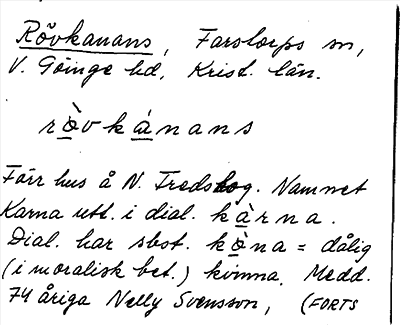 Rövkanans, Farstorps sn,
V. Göinge hd, Krist. län.
rò̱vká̱nans
Förr hus å N. Fredskog. Namnet
Karna utt. i dial. kà̱rna.
Dial. har sbst. kò̱na = dålig
(i moralisk bet.) kvinna. Medd.
74 åriga Nelly Svensson, (FORTS